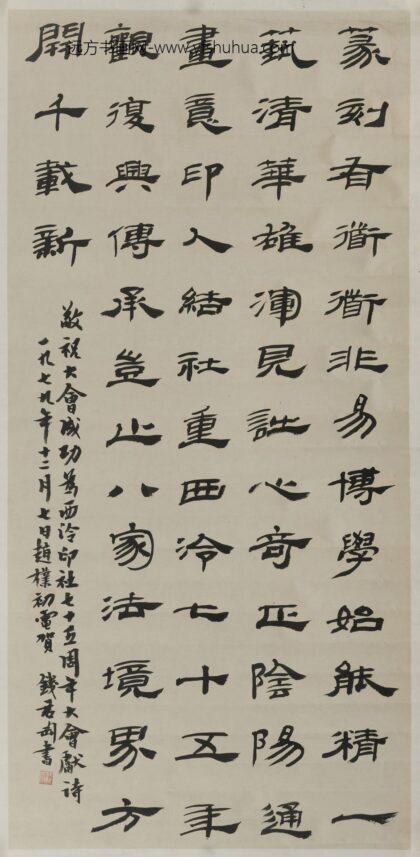 篆刻有衜衜非易博學始能精一
蓺清華雄渾見詩心奇正陰陽通
畫意印人結社重西泠七十五年
觀復興傳承豈止八家法境界方
開千載新
敬祝大會成功為西泠印社七十五周年大會獻詩
一九七九年十二月七日趙樸初電賀 錢君匋書